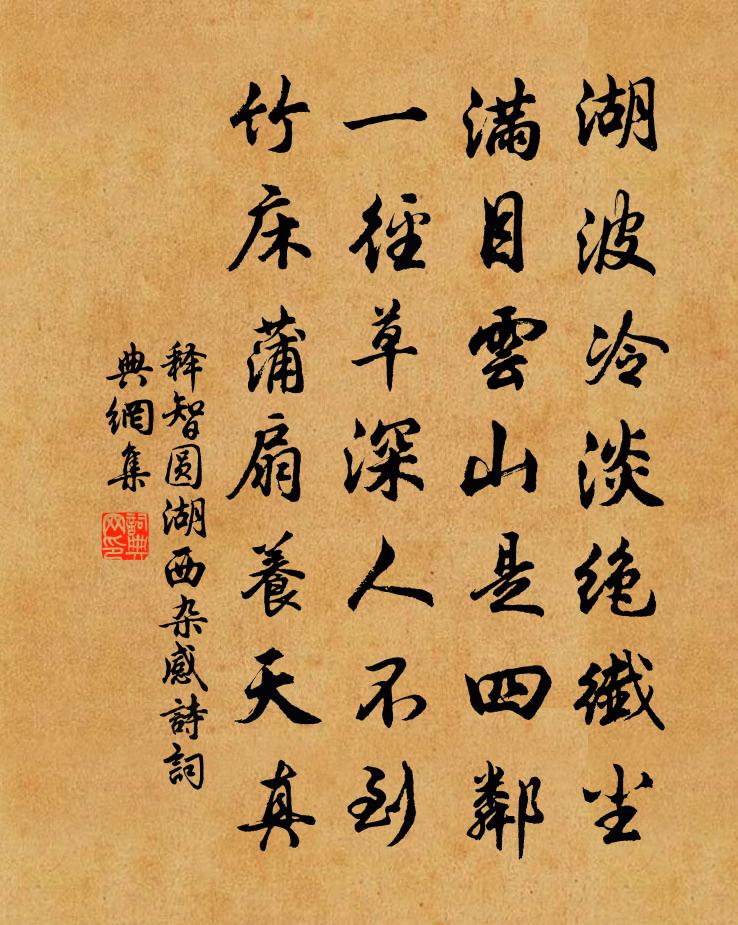 湖波冷淡绝纖尘
满目雲山是四鄰
一徑草深人不到
竹床蒲扇養天真
释智圆湖西杂感詩詞
典網集
詞典
网印